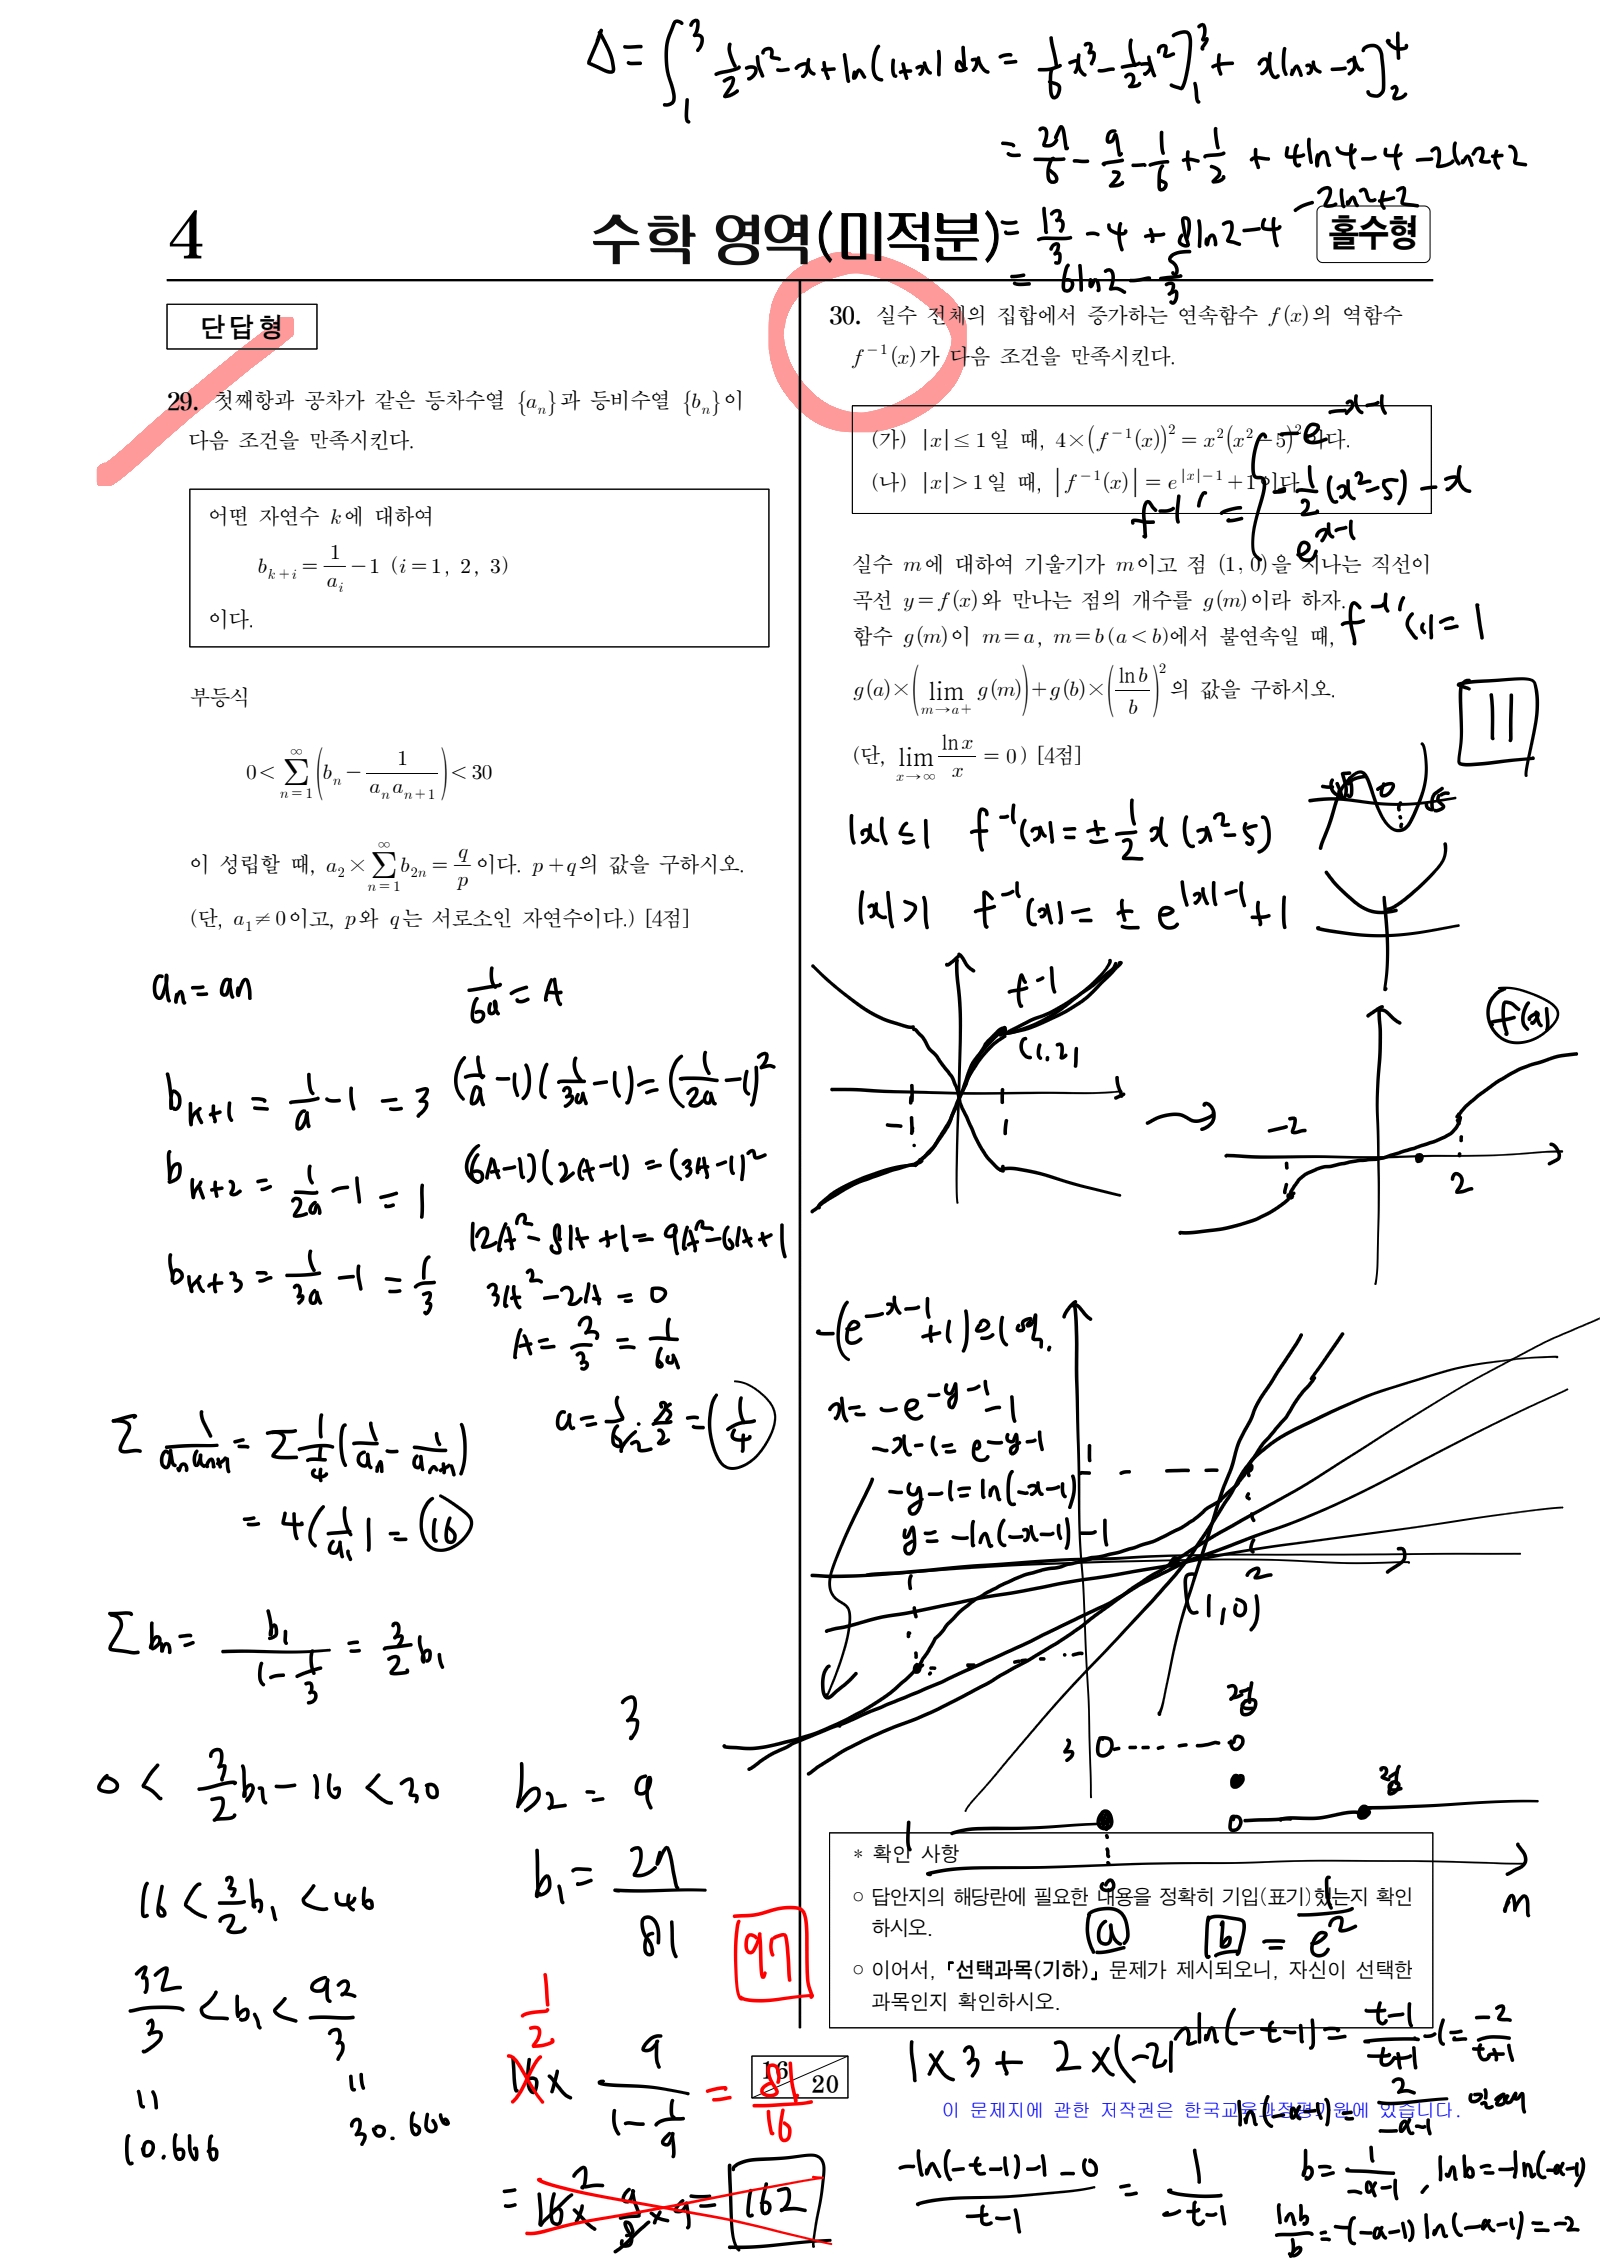 Δ = ∫₁³ 1/2 x² - x + ln(1+x) dx = 1/6 x³ - 1/2 x² ]₁³ + xlnx - x ]₂⁴
= 27/6 - 9/2 - 1/6 + 1/2 + 4ln4 - 4 - 2ln2 + 2
= 13/3 - 4 + 8ln2 - 4 - 2ln2 + 2
= 6ln2 - 5/3
4
수학 영역(미적분)
홀수형
단답형
29. 첫째항과 공차가 같은 등차수열 {aₙ}과 등비수열 {bₙ}이
다음 조건을 만족시킨다.
어떤 자연수 k에 대하여
b_{k+i} = 1/a_i - 1 (i = 1, 2, 3)
이다.
부등식
0 < Σ_{n=1}^{∞} (bₙ - 1/(aₙaₙ₊₁)) < 30
이 성립할 때, a₂ × Σ_{n=1}^{∞} b₂ₙ = q/p 이다. p+q의 값을 구하시오.
(단, a₁ ≠ 0이고, p와 q는 서로소인 자연수이다.) [4점]
aₙ = an
b_{k+1} = 1/a - 1 = 3
b_{k+2} = 1/2a - 1 = 1
b_{k+3} = 1/3a - 1 = 1/3
1/6a = A
(1/a - 1)(1/3a - 1) = (1/2a - 1)²
(6A-1)(2A-1) = (3A-1)²
12A² - 8A + 1 = 9A² - 6A + 1
3A² - 2A = 0
A = 2/3 = 1/6a
a = 1/6 · 3/2 = 1/4
Σ 1/(aₙaₙ₊₁) = Σ 1/(1/4) (1/aₙ - 1/aₙ₊₁)
= 4(1/a₁) = 16
Σbₙ = b₁/(1 - 1/3) = 3/2 b₁
0 < 3/2 b₁ - 16 < 30
16 < 3/2 b₁ < 46
32/3 < b₁ < 92/3
10.666
30.666
3
b₂ = 9
b₁ = 27
81
97
1/2
16 × 9/(1 - 1/9) = 81/16
= 16 × 9/8 × 9 = 162
2
30. 실수 전체의 집합에서 증가하는 연속함수 f(x)의 역함수
f⁻¹(x)가 다음 조건을 만족시킨다.
(가) |x| ≤ 1일 때, 4×(f⁻¹(x))² = x²(x²-5)²이다.
(나) |x| > 1일 때, |f⁻¹(x)| = e^{|x|-1} + 1이다.
f⁻¹′ = { -e^{-x-1}
-1/2(x²-5) - x
e^{x-1}
실수 m에 대하여 기울기가 m이고 점 (1, 0)을 지나는 직선이
곡선 y = f(x)와 만나는 점의 개수를 g(m)이라 하자.
함수 g(m)이 m = a, m = b (a < b)에서 불연속일 때,
f⁻¹′(1) = 1
g(a) × (lim_{m→a+} g(m)) + g(b) × (ln b / b)² 의 값을 구하시오.
(단, lim_{x→∞} ln x / x = 0) [4점]
11
|x| ≤ 1 f⁻¹(x) = ± 1/2 x (x²-5)
|x| > 1 f⁻¹(x) = ± e^{|x|-1} + 1
-√5 0 √5
f⁻¹
(1,2)
-1
1
f(x)
-2
2
x = -e^{-y-1} - 1
-x-1 = e^{-y-1}
-y-1 = ln(-x-1)
y = -ln(-x-1) - 1
1
2
(1,0)
3
1
0
m
a
b = 1/e²
* 확인 사항
○ 답안지의 해당란에 필요한 내용을 정확히 기입(표기)했는지 확인
하시오.
○ 이어서, 「선택과목(기하)」 문제가 제시되오니, 자신이 선택한
과목인지 확인하시오.
16
20
이 문제지에 관한 저작권은 한국교육과정평가원에 있습니다.
1 × 3 + 2 × (-2)²
ln(-t-1) = (t-1)/(t+1) - 1 = -2/(t+1)
ln(-α-1) = 2/(-α-1) 일 때
(-ln(-t-1) - 1 - 0)/(t-1) = 1/(-t-1)
b = 1/(-α-1), ln b = -ln(-α-1)
ln b / b = -(-α-1) ln(-α-1) = -2